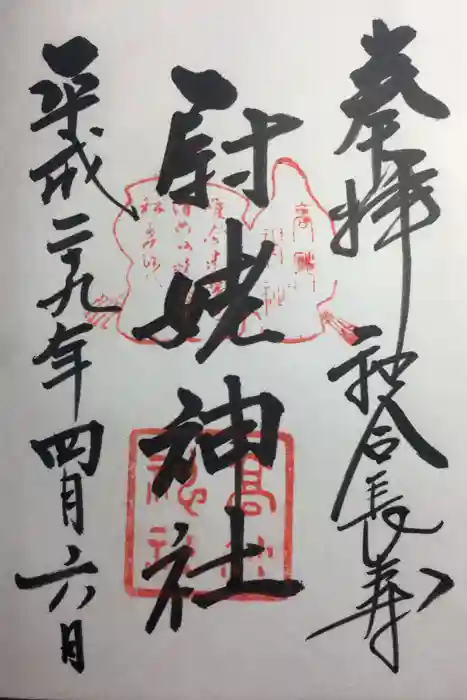 奉拝 和合長寿
尉姥神社
平成二十九年四月六日